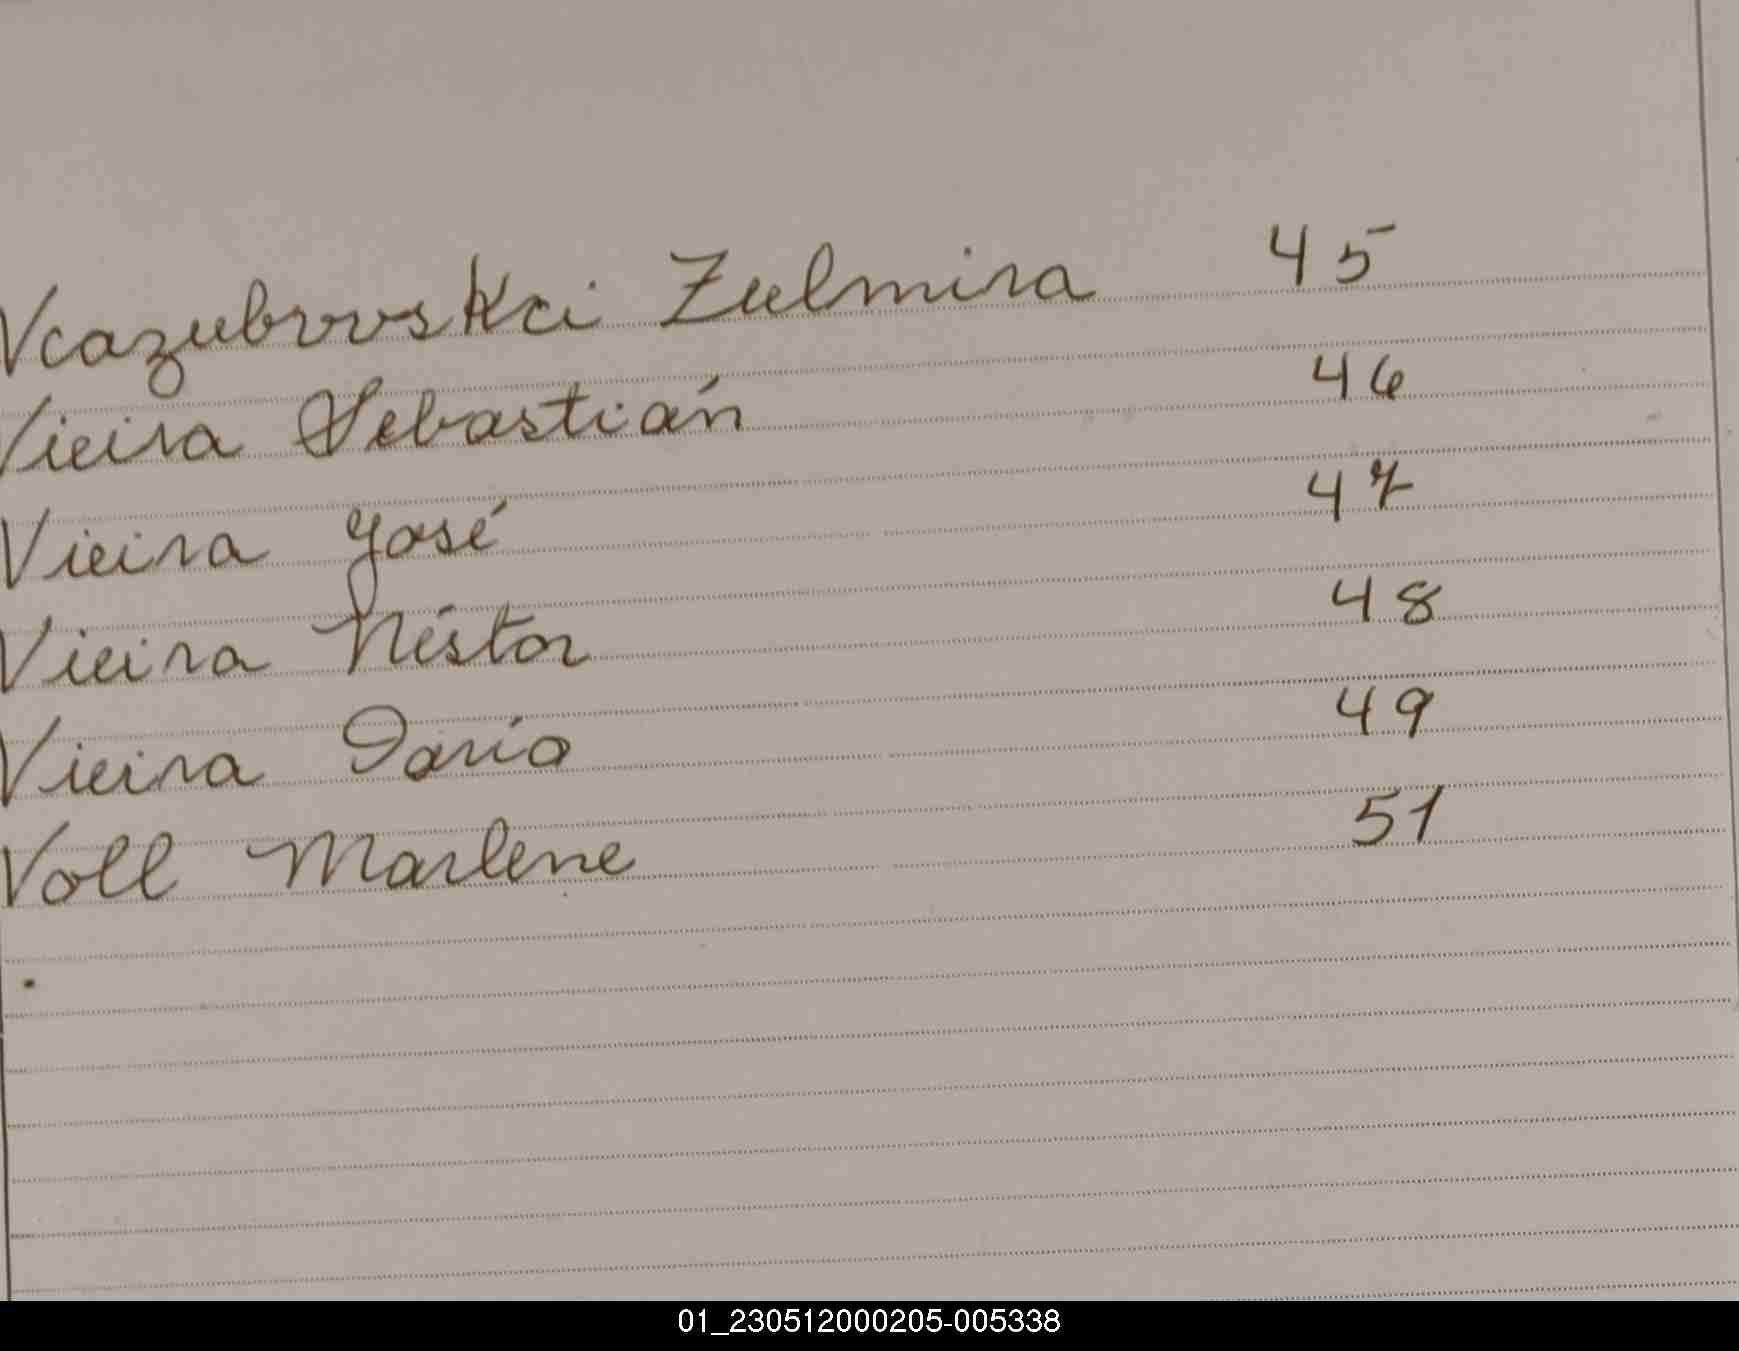 Vcazubrvski Zulmira 45
Vieira Sebastián 46
Vieira José 47
Vieira Néstor 48
Vieira Dario 49
Voll Marlene 51
01_230512000205-005338